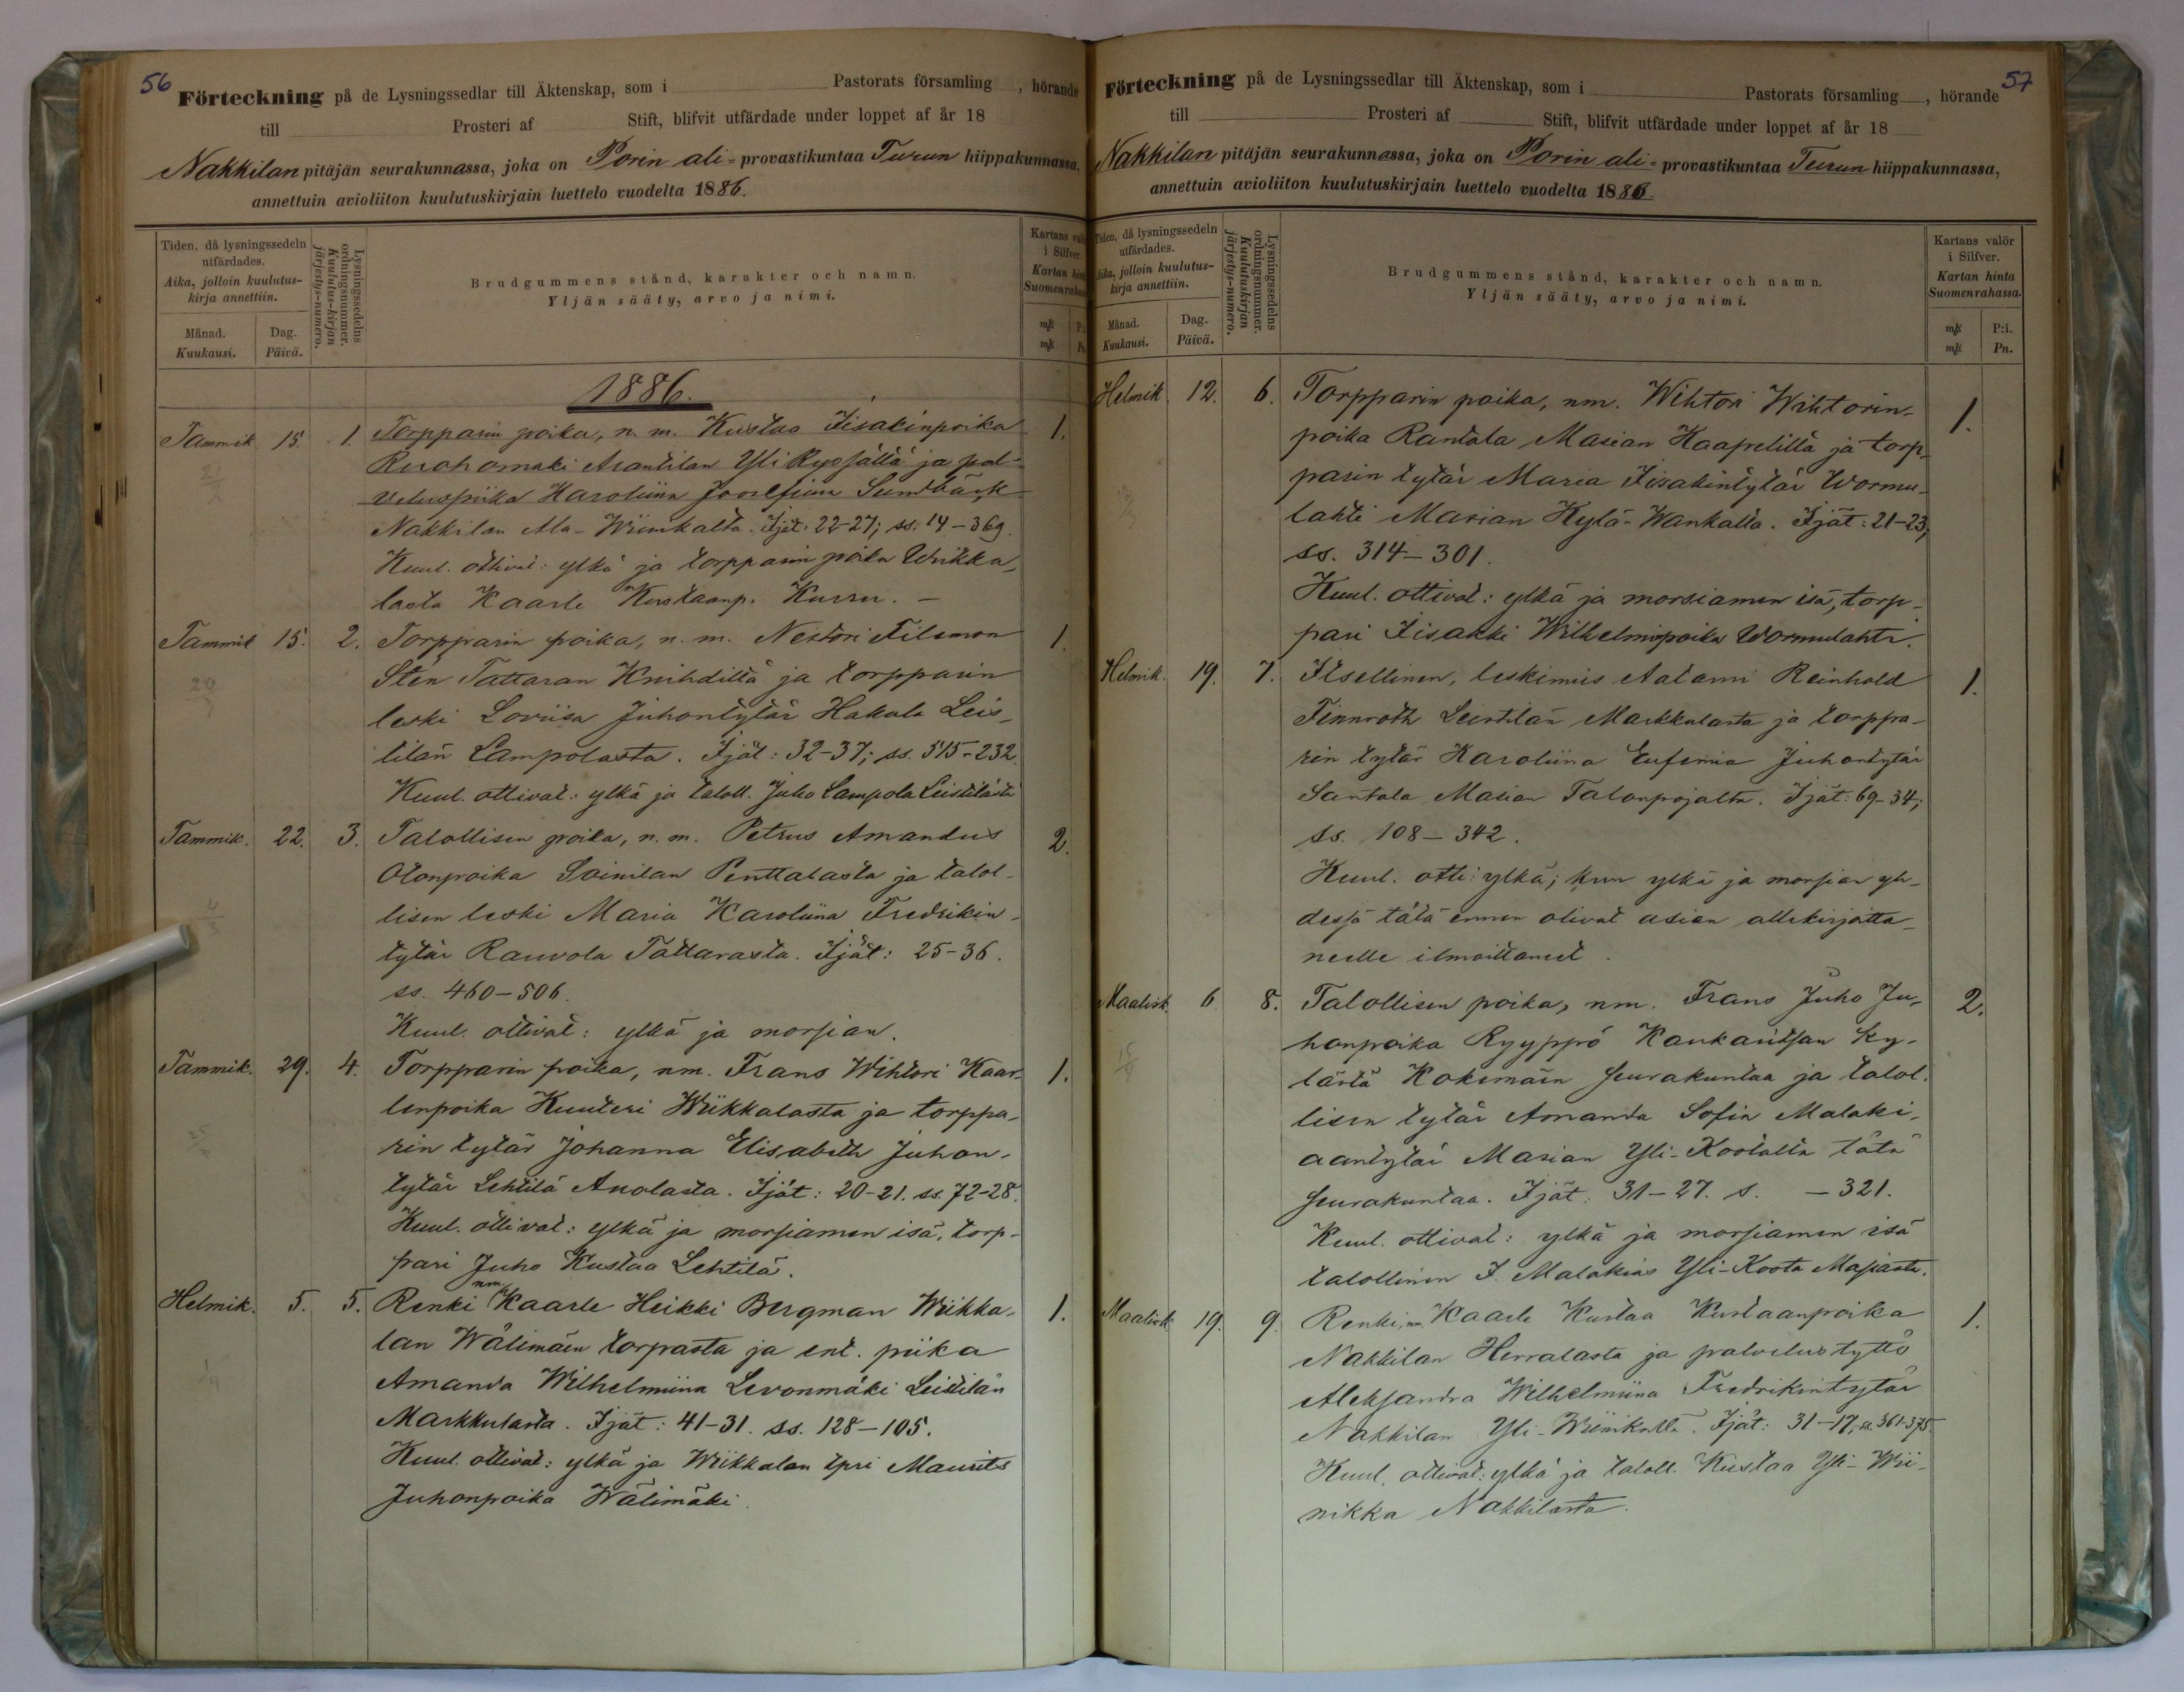 56
Förteckning på de Lysningssedlar till Äktenskap, som i Pastorats församling, hörande
till Prosteri af Stift, blifvit utfärdade under loppet af år 18
Nakkilan pitäjän seurakunnassa, joka on Porin ali-provastikuntaa Turun hiippakunnassa,
annettuin avioliiton kuulutuskirjain luettelo vuodelta 1886.
Tiden, då lysningssedeln utfärdades.
Aika, jolloin kuulutus-kirja annettiin.
Månad.
Kuukausi.
Dag.
Päivä.
Lysningssedelns ordningsnummer.
Kuulutus-kirjan järjestys-numero.
Brudgummens stånd, karakter och namn.
Yljän sääty, arvo ja nimi.
1886.
Tammik. 15. 1. Torpparin poika, n. m. Kustaa Iisakinpoika 1.
Ruohomaki Arantilan Yli Ryssältä ja pal-
veluspiika Karoliina Joosefiina Sundbäck
Nakkilan Ala-Wiinikalta. Ijät: 22-27; ss. 14-369.
Kuul. ottivat: ylkä ja torpparin poika Wiikka-
lasta Kaarle Kustaanp. Kussu. —
Tammik 15. 2. Torpparin poika, n. m. Nestori Filemon 1.
Sten Tattaran Knihdiltä ja torpparin
leski Loviisa Juhontytär Hakula Leis-
tilän Lampolasta. Ijät: 32-37; ss. 515-232.
Kuul. ottivat: ylkä ja taloll. Juho Lampola Leistilästä
Tammik. 22. 3. Talollisen poika, n. m. Petrus Amandus 2.
Otonpoika Soinilan Penttalasta ja talol-
lisen leski Maria Karoliina Fredrikin-
tytär Rauvola Tattarasta. Ijät: 25-36.
ss. 460-506.
Kuul. ottivat: ylkä ja morsian.
Tammik. 29. 4. Torpparin poika, nm. Frans Wihtori Kaar- 1.
lenpoika Kuuteri Wiikkalasta ja torppa-
rin tytär Johanna Elisabeth Juhon-
tytär Lehtilä Anolasta. Ijät: 20-21. ss. 72-28.
Kuul. ottivat: ylkä ja morsiamen isä, torp-
pari Juho Kustaa Lehtilä.
Helmik. 5. 5. Renki nm Kaarle Heikki Bergman Wiikka- 1.
lan Wälimäen torpasta ja ent. piika
Amanda Wilhelmiina Levonmäki Leistilän
Markkulasta. Ijät: 41-31. ss. 128-105.
Kuul. ottivat: ylkä ja Wiikkalan tpri Maurits
Juhonpoika Wälimäki.
57
Förteckning på de Lysningssedlar till Äktenskap, som i Pastorats församling, hörande
till Prosteri af Stift, blifvit utfärdade under loppet af år 18
Nakkilan pitäjän seurakunnassa, joka on Porin ali-provastikuntaa Turun hiippakunnassa,
annettuin avioliiton kuulutuskirjain luettelo vuodelta 1886.
Tiden, då lysningssedeln utfärdades.
Aika, jolloin kuulutus-kirja annettiin.
Månad.
Kuukausi.
Dag.
Päivä.
Lysningssedelns ordningsnummer.
Kuulutuskirjan järjestys-numero.
Brudgummens stånd, karakter och namn.
Yljän sääty, arvo ja nimi.
Kartans valör i Silfver.
Kartan hinta Suomenrahassa.
P:i.
Pn.
Helmik. 12. 6. Torpparin poika, nm. Wihtori Wihtorin- 1.
poika Rantala Masian Kaapelilta ja torp-
parin tytär Maria Iisakintytär Wormu-
lahti Masian Kylä-Wankalla. Ijät: 21-23;
ss. 314-301.
Kuul. ottivat: ylkä ja morsiamen isä, torp-
pari Iisakki Wilhelminpoika Wormulahti.
Helmik. 19. 7. Itsellinen, leskimies Aatami Reinhold 1.
Finnroth Leistilän Markkulasta ja torppa-
rin tytär Karoliina Eufemia Juhontytär
Santala Masian Talonpojalta. Ijät: 69-34;
ss. 108-342.
Kuul. otti: ylkä; kun ylkä ja morsian yh-
dessä tätä ennen olivat asian allekirjotta-
neelle ilmoittaneet.
Maalisk. 6 8. Talollisen poika, nm. Frans Juho Ju- 2.
honpoika Ryyppö Kaukaritsan ky-
lästä Kokemäen seurakuntaa ja talol-
lisen tytär Amanda Sofia Malaki-
aantytär Masian Yli-Kootalta tätä
seurakuntaa. Ijät: 31-27. s. — 321.
Kuul. ottivat: ylkä ja morsiamen isä
talollinen I. Malakias Yli-Koota Masiasta.
Maalisk 19. 9. Renki, nm. Kaarle Kustaa Kustaanpoika 1.
Nakkilan Herralasta ja palvelustyttö
Aleksandra Wilhelmiina Fredrikintytär
Nakkilan Yli-Wiinikalta. Ijät: 31-17; ss. 361-375
Kuul. ottivat: ylkä ja taloll. Kustaa Yli-Wii-
nikka Nakkilasta.